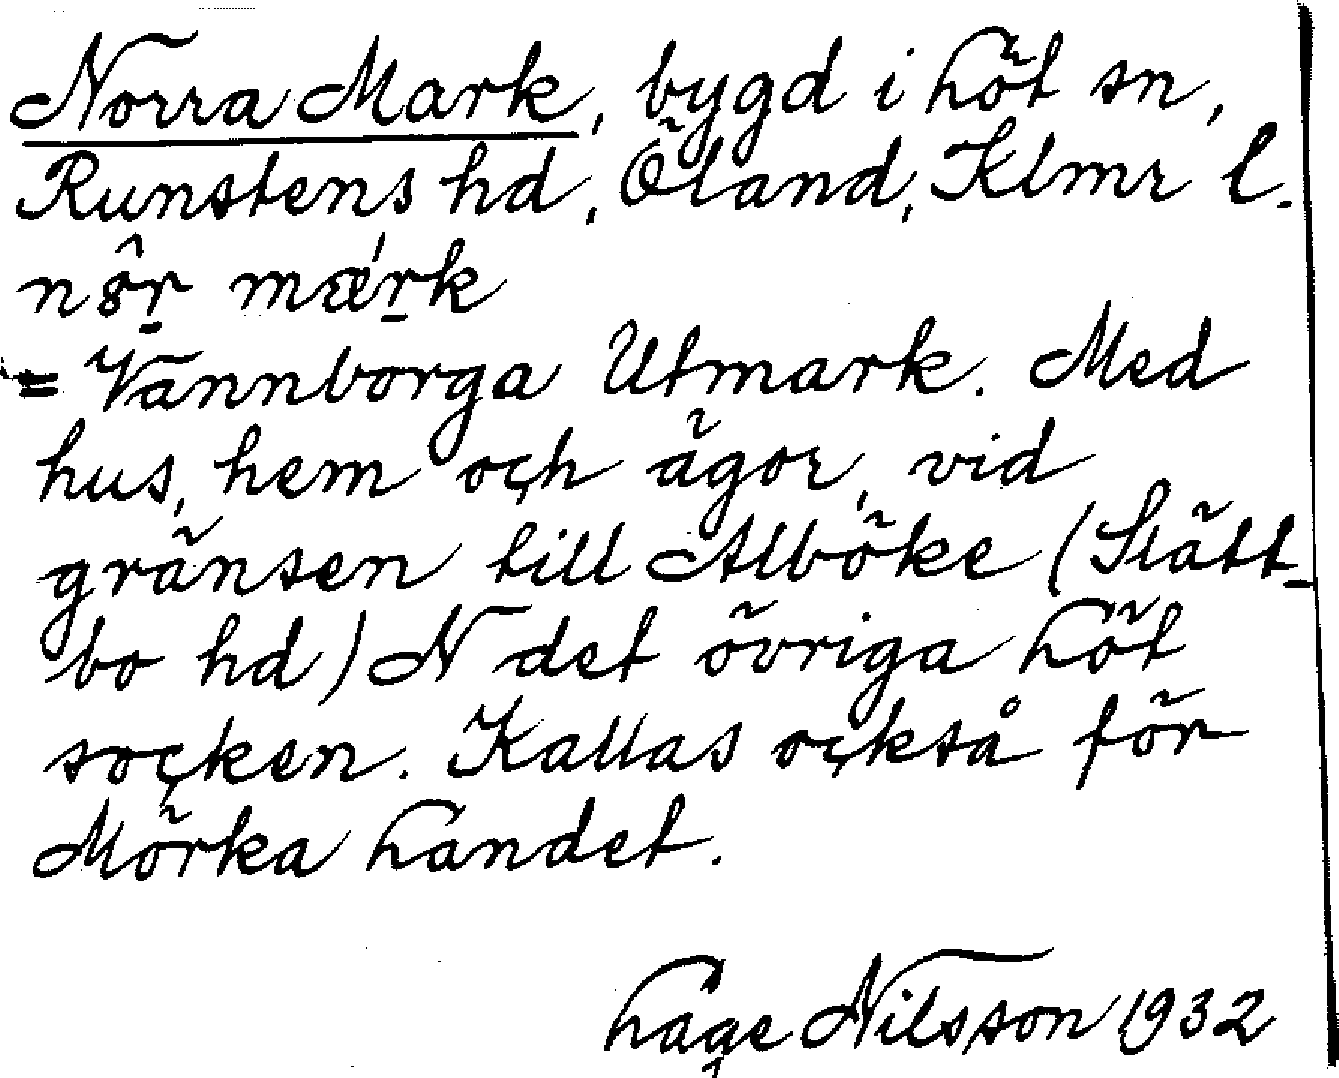 Norra Mark, bygd i Löt sn,
Runstens hd, Öland, Klmr l.
nôr mærk
= Vannborga Utmark. Med
hus, hem och ägor, vid
gränsen till Alböke (Slätt-
bo hd) N det övriga Löt
socken. Kallas också för
Mörka Landet.
Lage Nilsson 1932